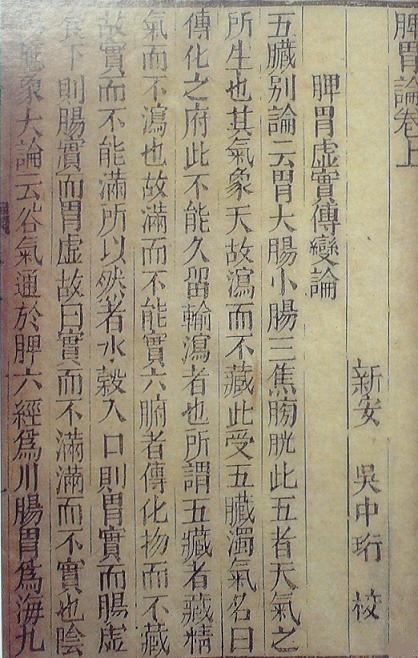 脾胃論卷上
新安 吳中珩 校
脾胃虛實傳變論
五臟别論云胃大腸小腸三焦膀胱此五者天氣之
所生也其氣象天故瀉而不藏此受五臟濁氣名曰
傳化之府此不能久留輸瀉者也所謂五臟者藏精
氣而不瀉也故滿而不能實六腑者傳化物而不藏
故實而不能滿所以然者水榖入口則胃實而腸虛
食下則腸實而胃虛故曰實而不滿滿而不實也陰
應象大論云谷氣通於脾六經爲川腸胃爲海九